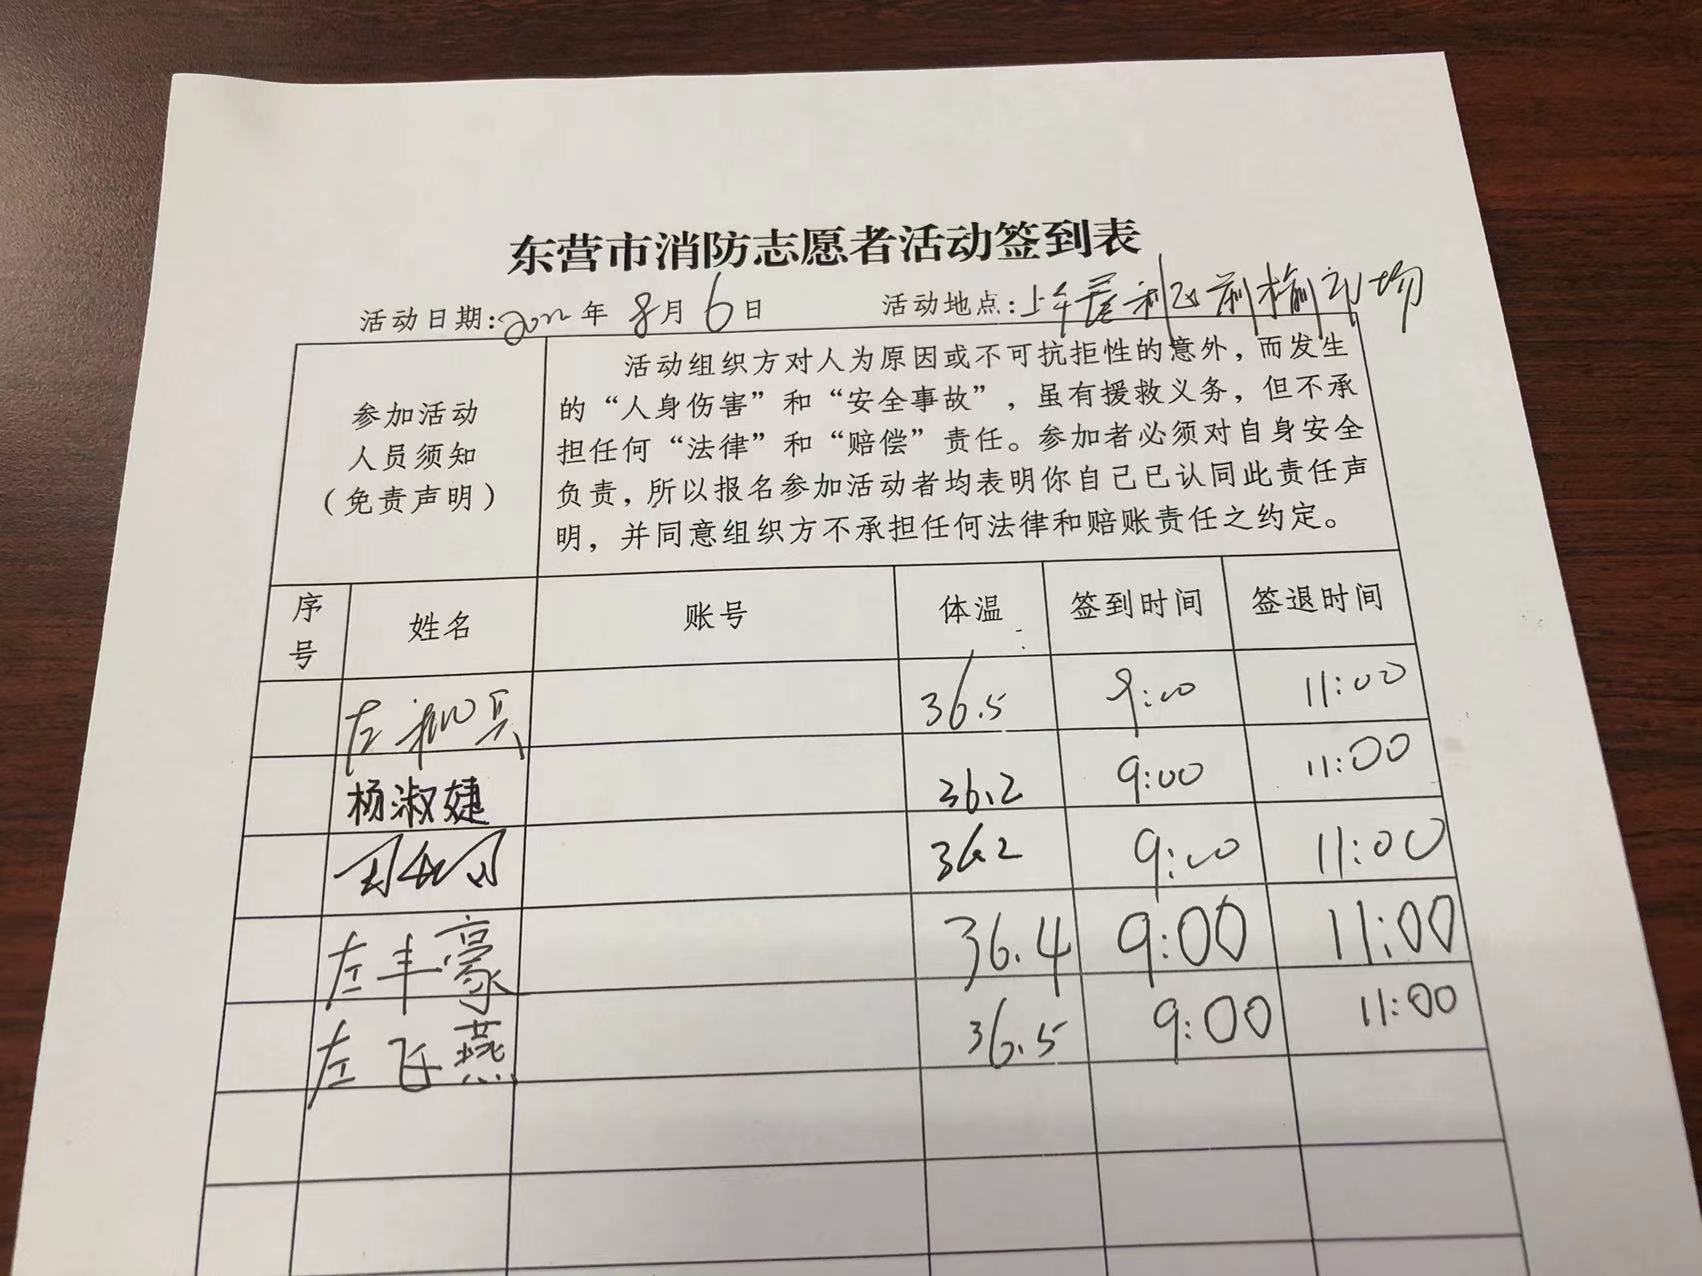 东营市消防志愿者活动签到表
活动日期:2022年8月6日 活动地点:上午
活动组织方对人为原因或不可抗拒性的意外，而发生
参加活动
人员须知
（免责声明）
的“人身伤害”和“安全事故”，虽有援救义务，但不承
担任何“法律”和“赔偿”责任。参加者必须对自身安全
负责，所以报名参加活动者均表明你自己已认同此责任声
明，并同意组织方不承担任何法律和赔账责任之约定。
序号 姓名 账号 体温 签到时间 签退时间
左 36.5 9:00 11:00
杨淑婕 36.2 9:00 11:00
36.2 9:00 11:00
左丰豪 36.4 9:00 11:00
左飞燕 36.5 9:00 11:00